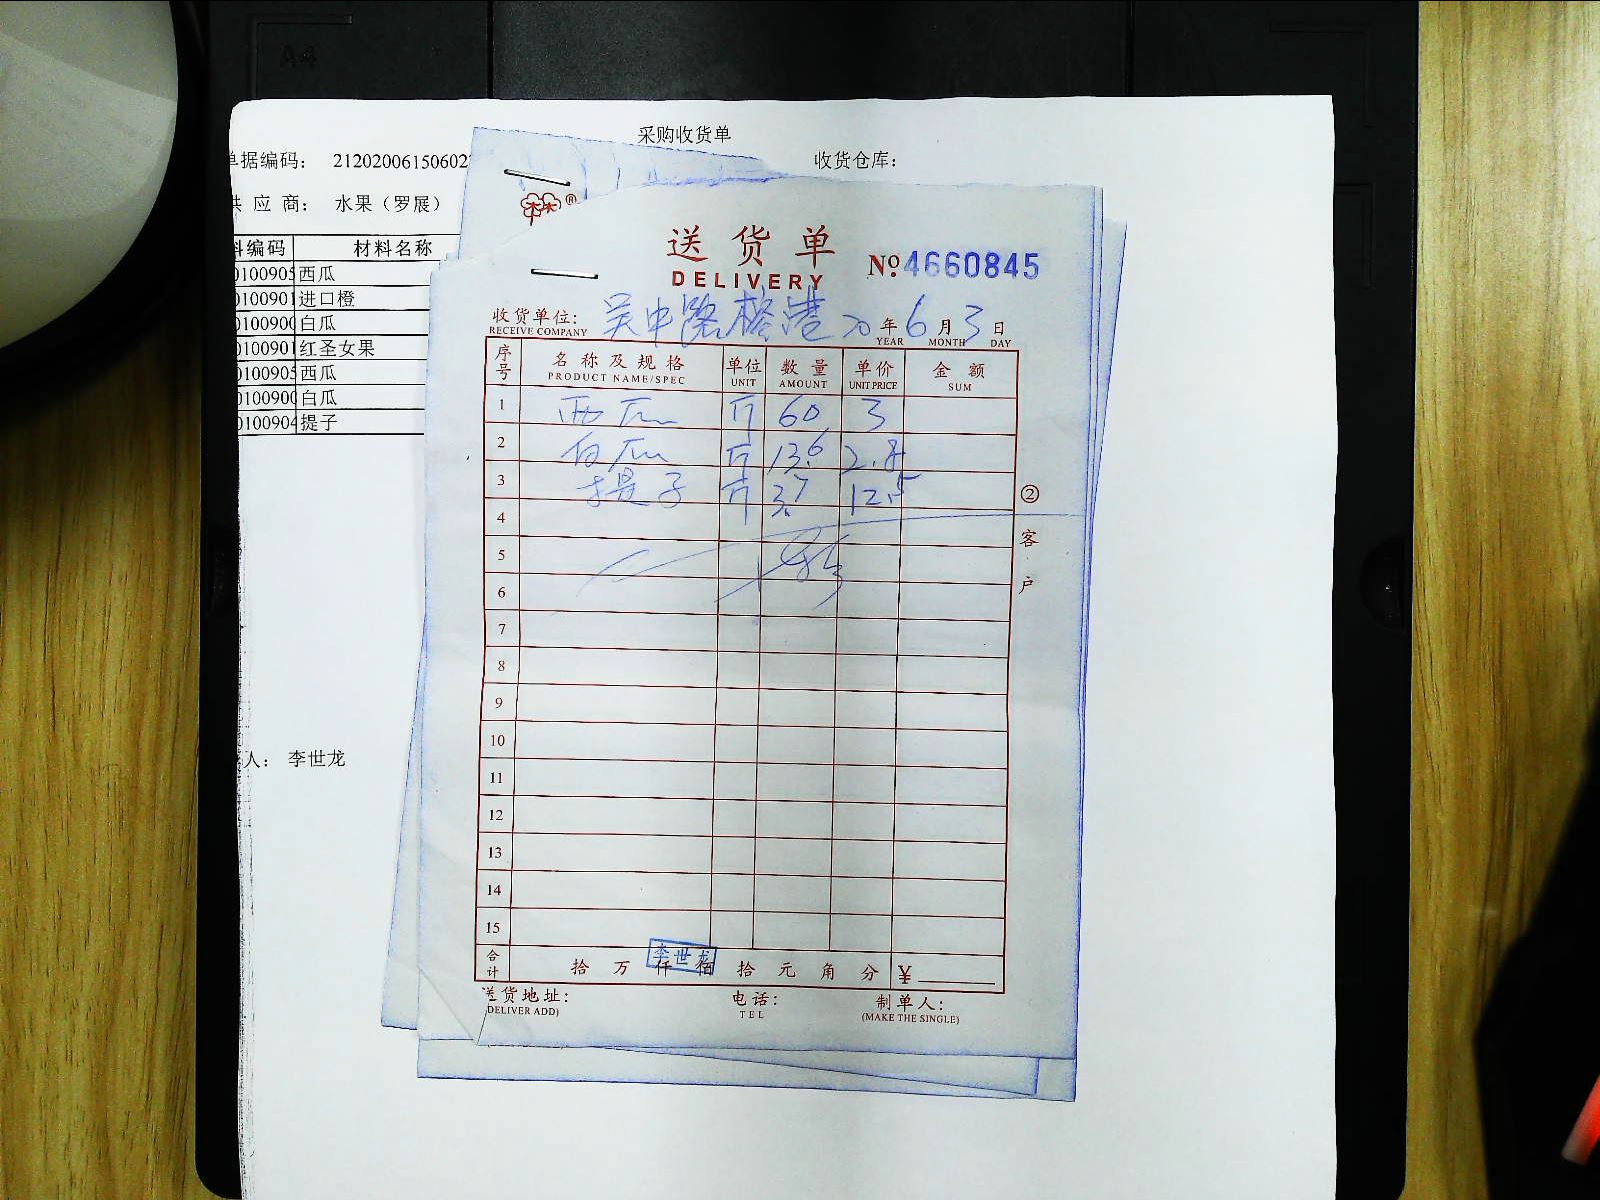 A4
采购收货单
单据编码： 2120200615060
收货仓库：
供 应 商： 水果（罗展）
料编码 材料名称
0100905 西瓜
010090 进口橙
010090 白瓜
010090 红圣女果
0100905 西瓜
010090 白瓜
010090 提子
人： 李世龙
®
送货单
DELIVERY
No.4660845
收货单位： 吴中路榕港 20 年 6 月 3 日
RECEIVE COMPANY YEAR MONTH DAY
序号 名称及规格 单位 数量 单价 金额
PRODUCT NAME/SPEC UNIT AMOUNT UNIT PRICE SUM
1 西瓜 斤 60 3
2 白瓜 斤 13.6 2.8
3 提子 斤 3.7 12.5
4
5
6
7
8
9
10
11
12
13
14
15
合计 拾 万 仟 佰 拾 元 角 分 ¥
李世龙
② 客户
送货地址： 电话： 制单人：
(DELIVER ADD) TEL (MAKE THE SINGLE)